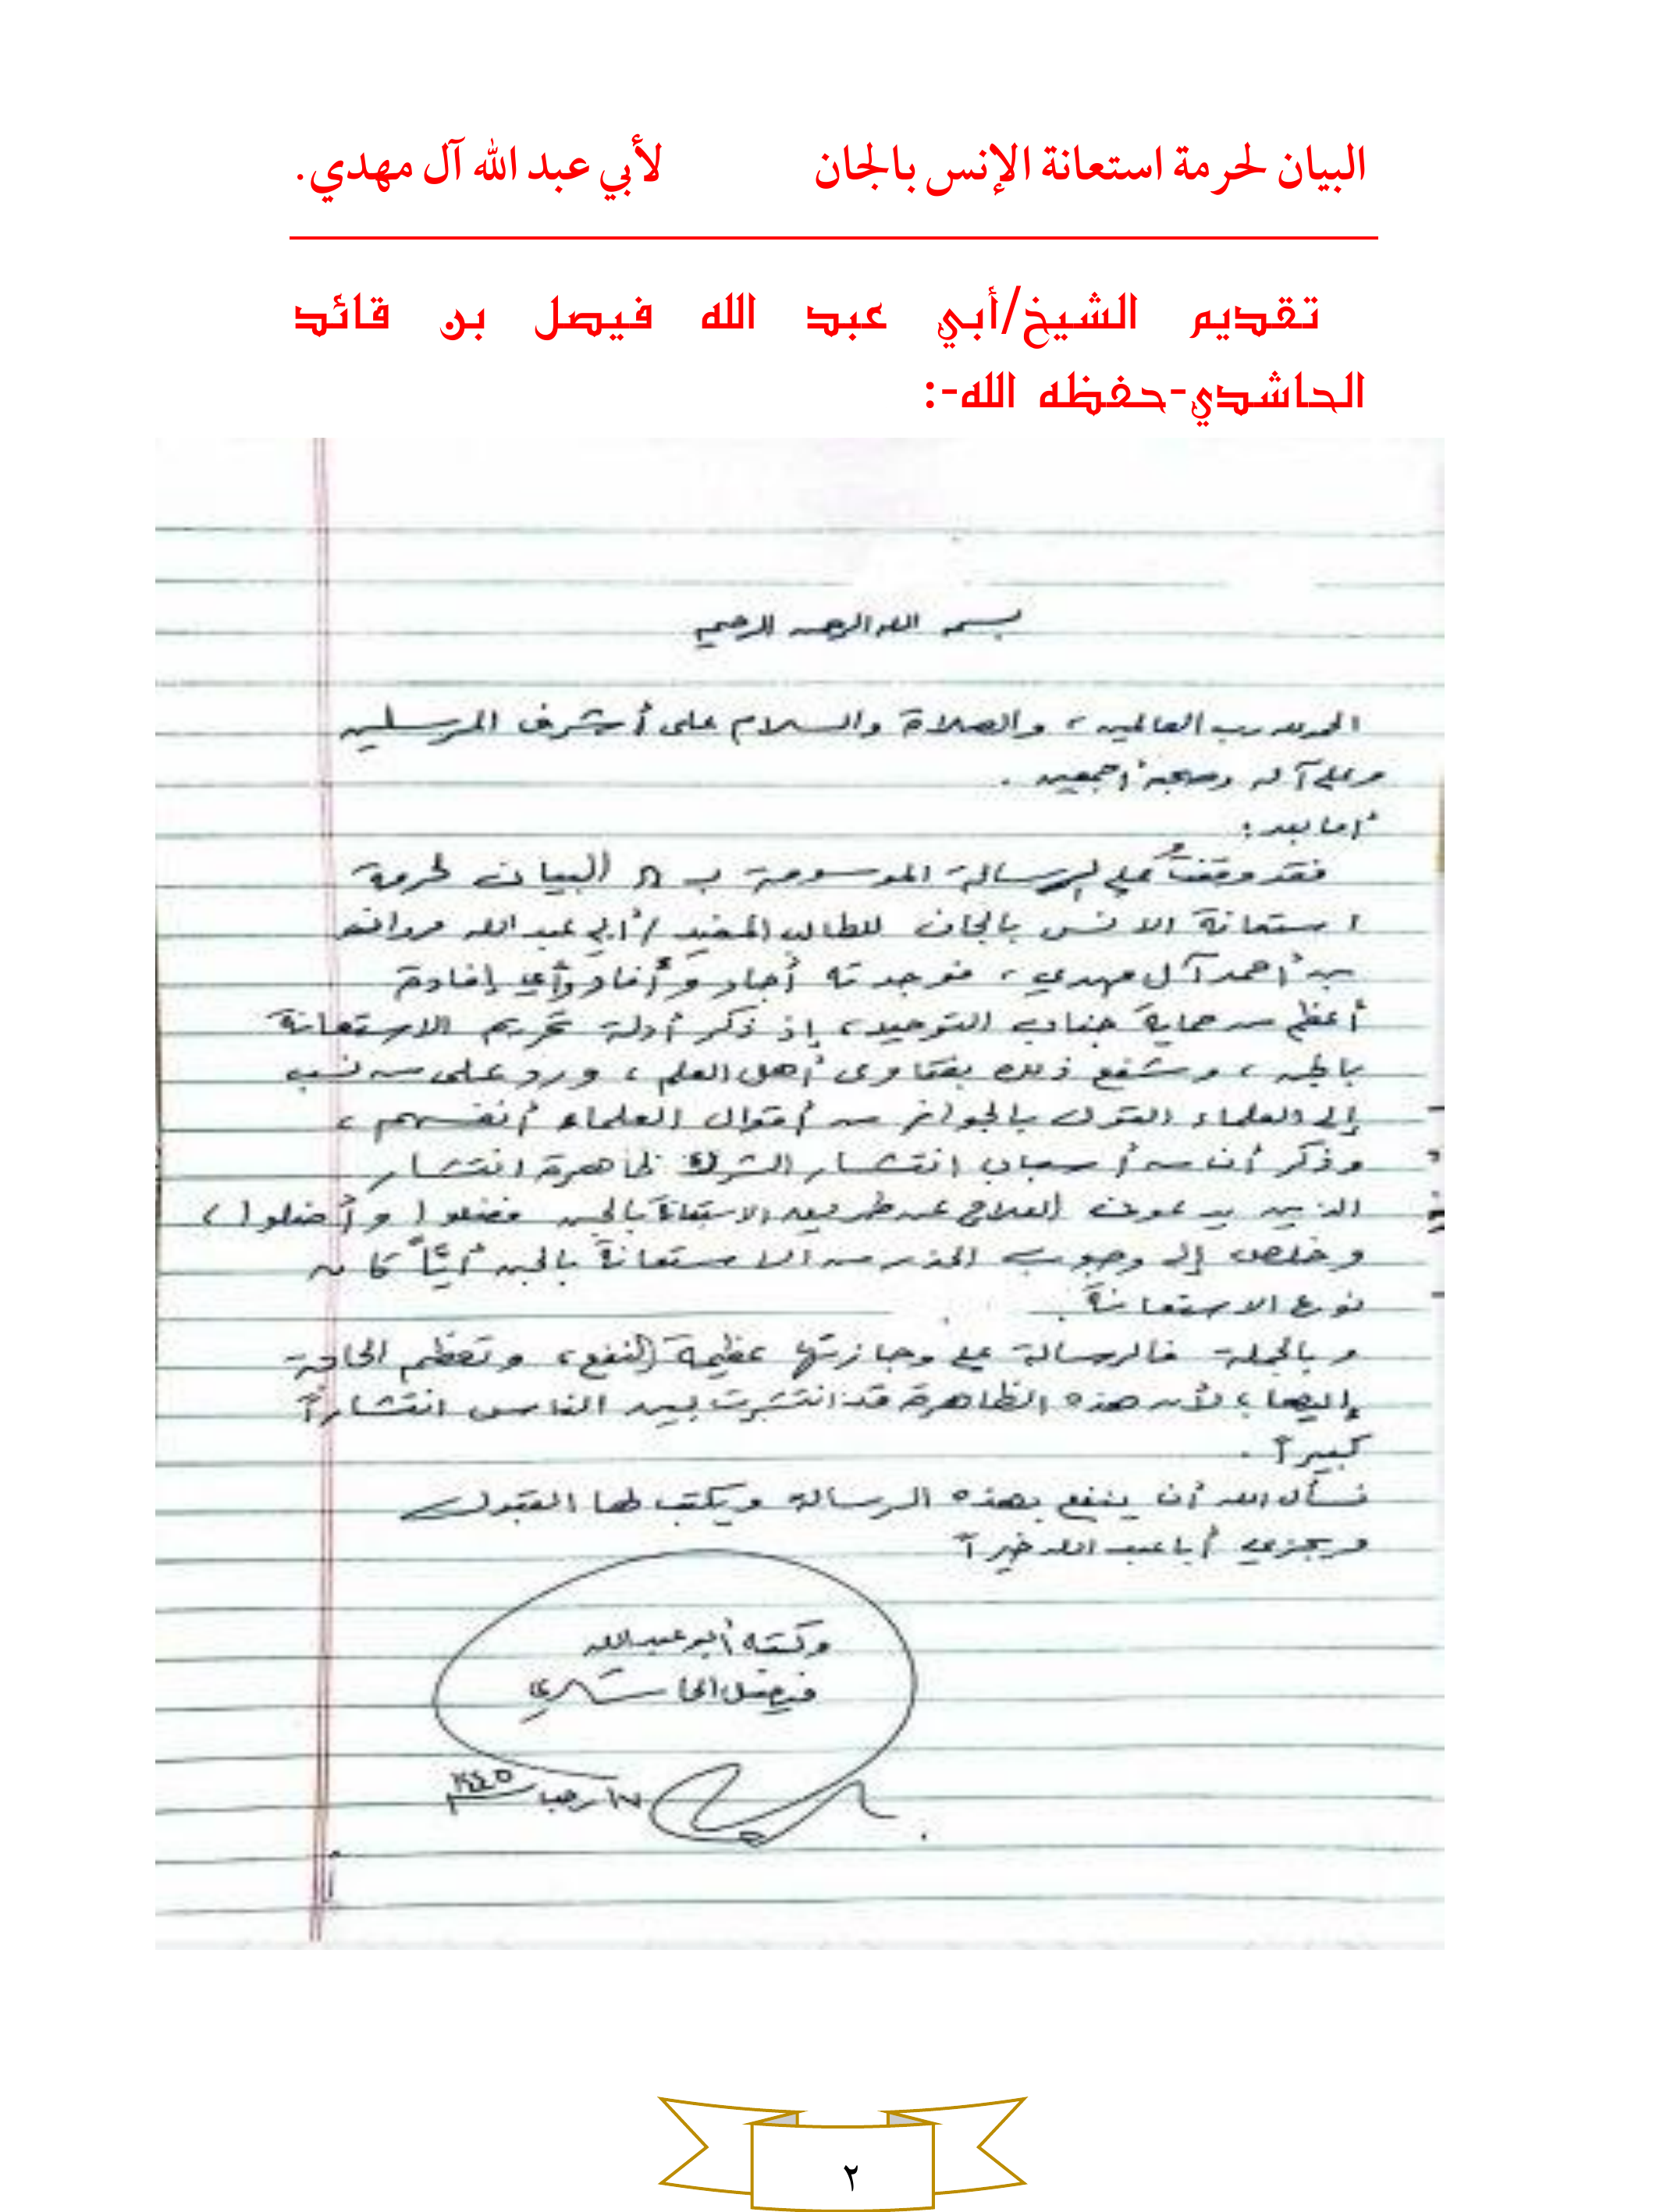 البيان لحرمة استعانة الإنس بالجان لأبي عبد الله آل مهدي.
تقديم الشيخ/أبي عبد الله فيصل بن قائد
الحاشدي-حفظه الله-:
بسم الله الرحمن الرحيم
الحمد لله رب العالمين، والصلاة والسلام على أشرف المرسلين
وعلى آله وصحبه أجمعين.
أما بعد:
فقد وقفتُ على الرسالة الموسومة بـ (( البيان لحرمة
استعانة الانس بالجان للطالب المفيد /أبي عبد الله مروان
بن أحمد آل مهدي، فوجدته أجاد وأفاد وأي إفادة
أعظم من حماية جناب التوحيد، إذ ذكر أدلة تحريم الاستعانة
بالجن، وشفع ذلك بفتاوى أهل العلم، ورد على من نسب
إلى العلماء القول بالجواز من أقوال العلماء أنفسهم،
وذكر أن من أسباب انتشار الشرك ظاهرة انتشار
الذين يدعون العلاج عن طريق الاستعانة بالجن فضلوا وأضلوا،
وخلص إلى وجوب الحذر من الاستعانة بالجن أيًّا كان
نوع الاستعانة.
وبالجملة فالرسالة على وجازتها عظيمة النفع، وتعظم الحاجة
إليها؛ لأن هذه الظاهرة قد انتشرت بين الناس انتشاراً
كبيراً.
نسأل الله أن ينفع بهذه الرسالة ويكتب لها القبول
ويجزي أبا عبد الله خيراً
وكتبه أبو عبد الله
فيصل الحاشدي
١٧ رجب ١٤٤٥
٢